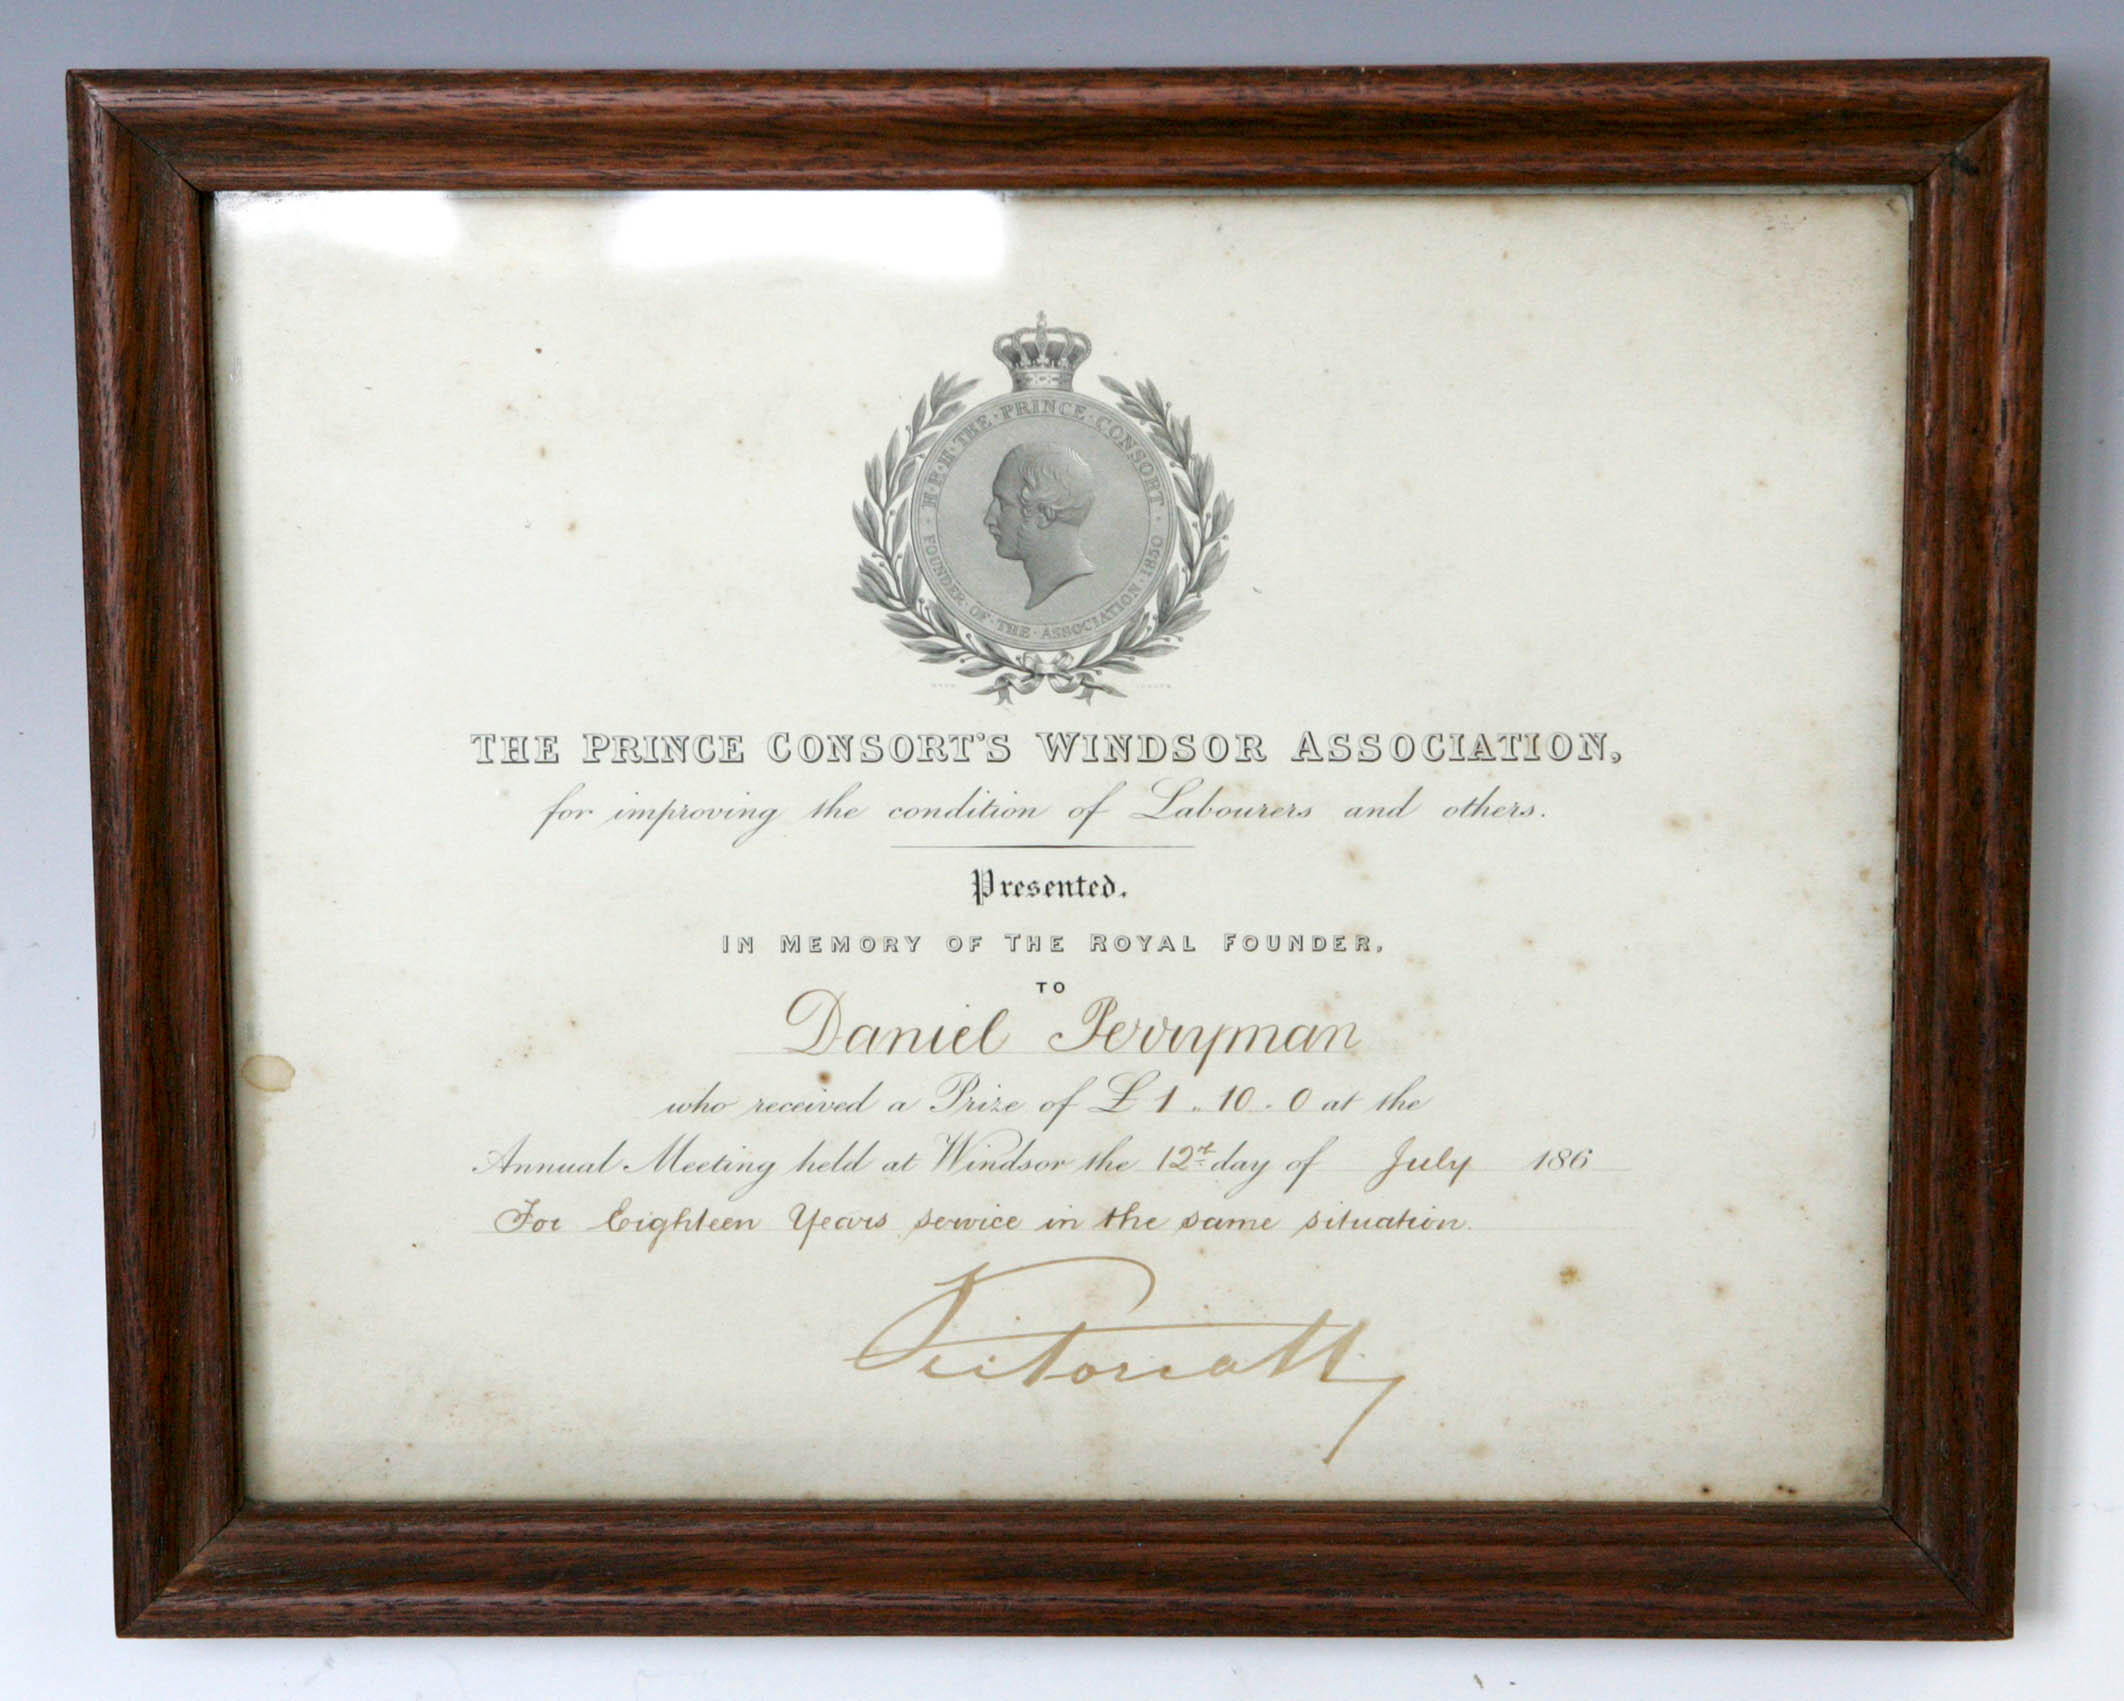 H · R · H · THE · PRINCE · CONSORT ·
FOUNDER · OF · THE · ASSOCIATION · 1850
THE PRINCE CONSORT'S WINDSOR ASSOCIATION,
for improving the condition of Labourers and others.
Presented.
IN MEMORY OF THE ROYAL FOUNDER,
TO
Daniel Perryman
who received a Prize of £ 1 .. 10 . 0 at the
Annual Meeting held at Windsor the 12th day of July 186
For Eighteen Years service in the same situation.
Victoria R